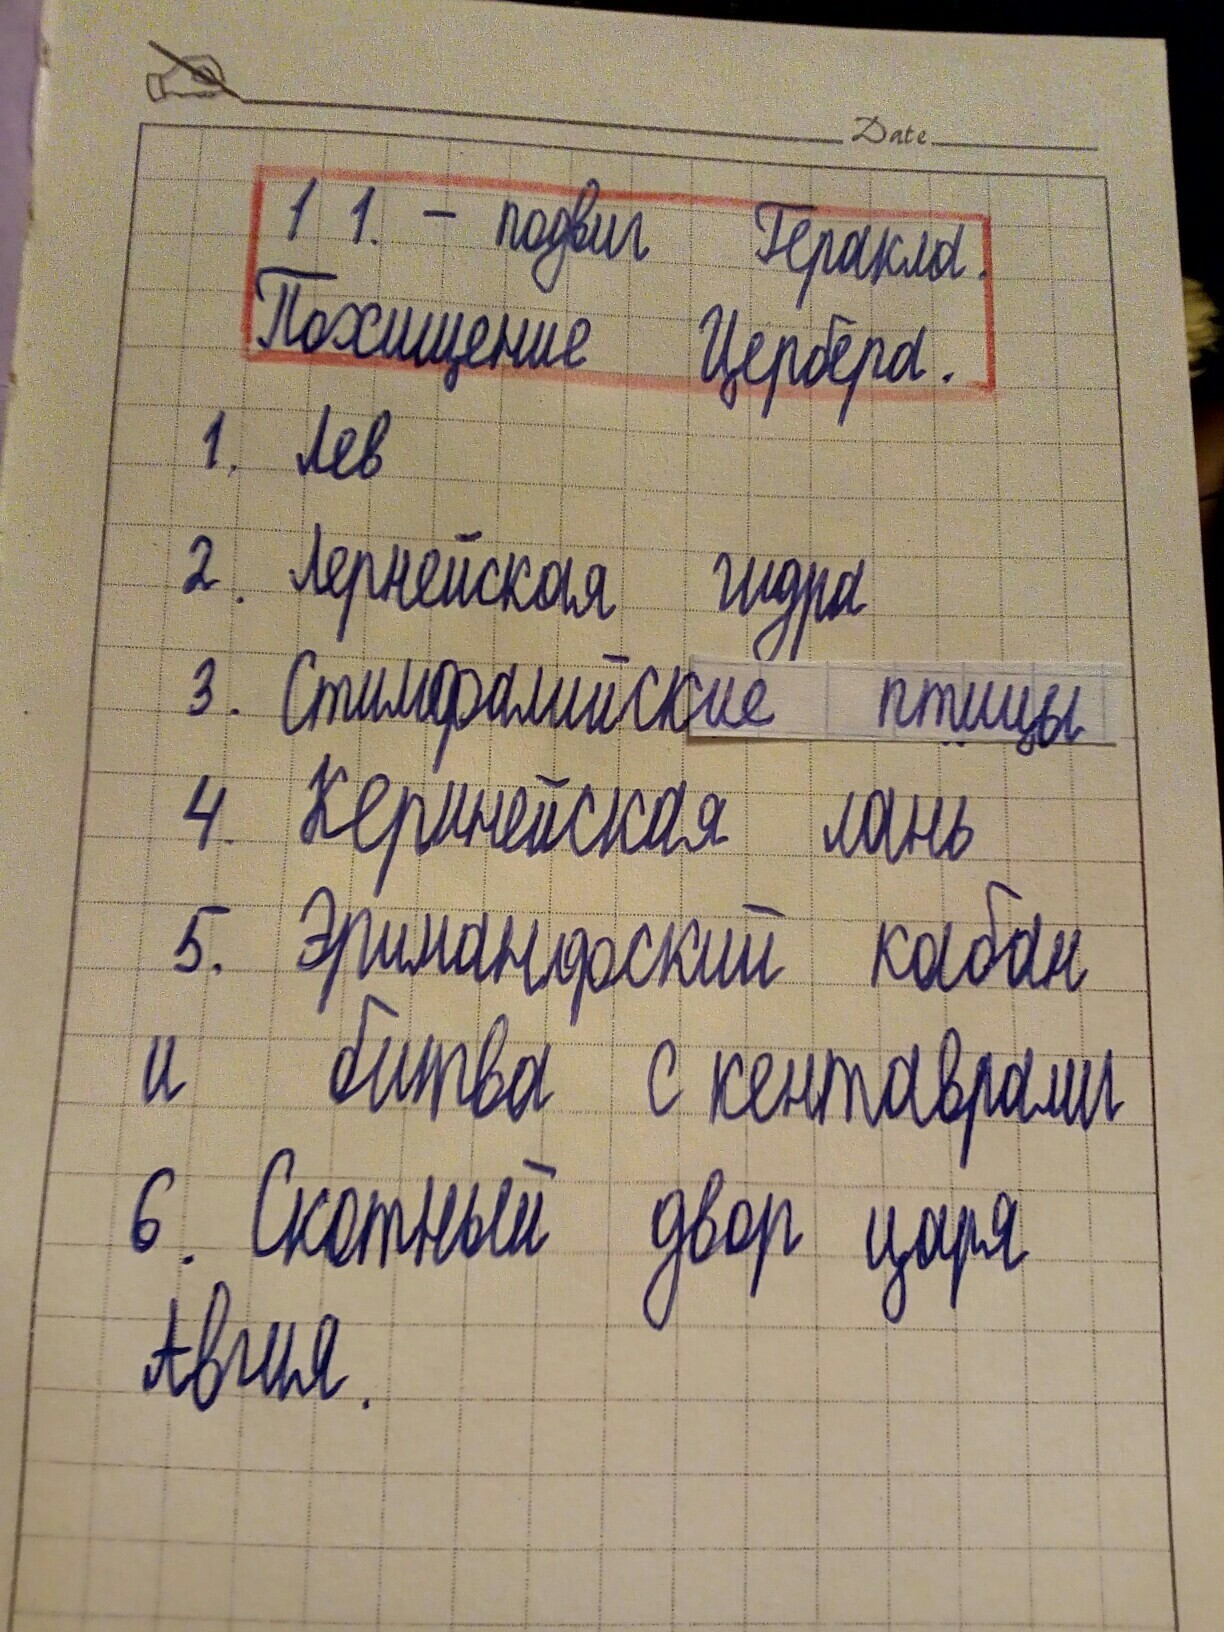 Date
11. - подвиг Геракла.
Похищение Цербера.
1. Лев
2. Лернейская гидра
3. Стимфалийские птицы
4. Керинейская лань
5. Эриманфский кабан
и битва с кентаврами
6. Скотный двор царя
Авгия.